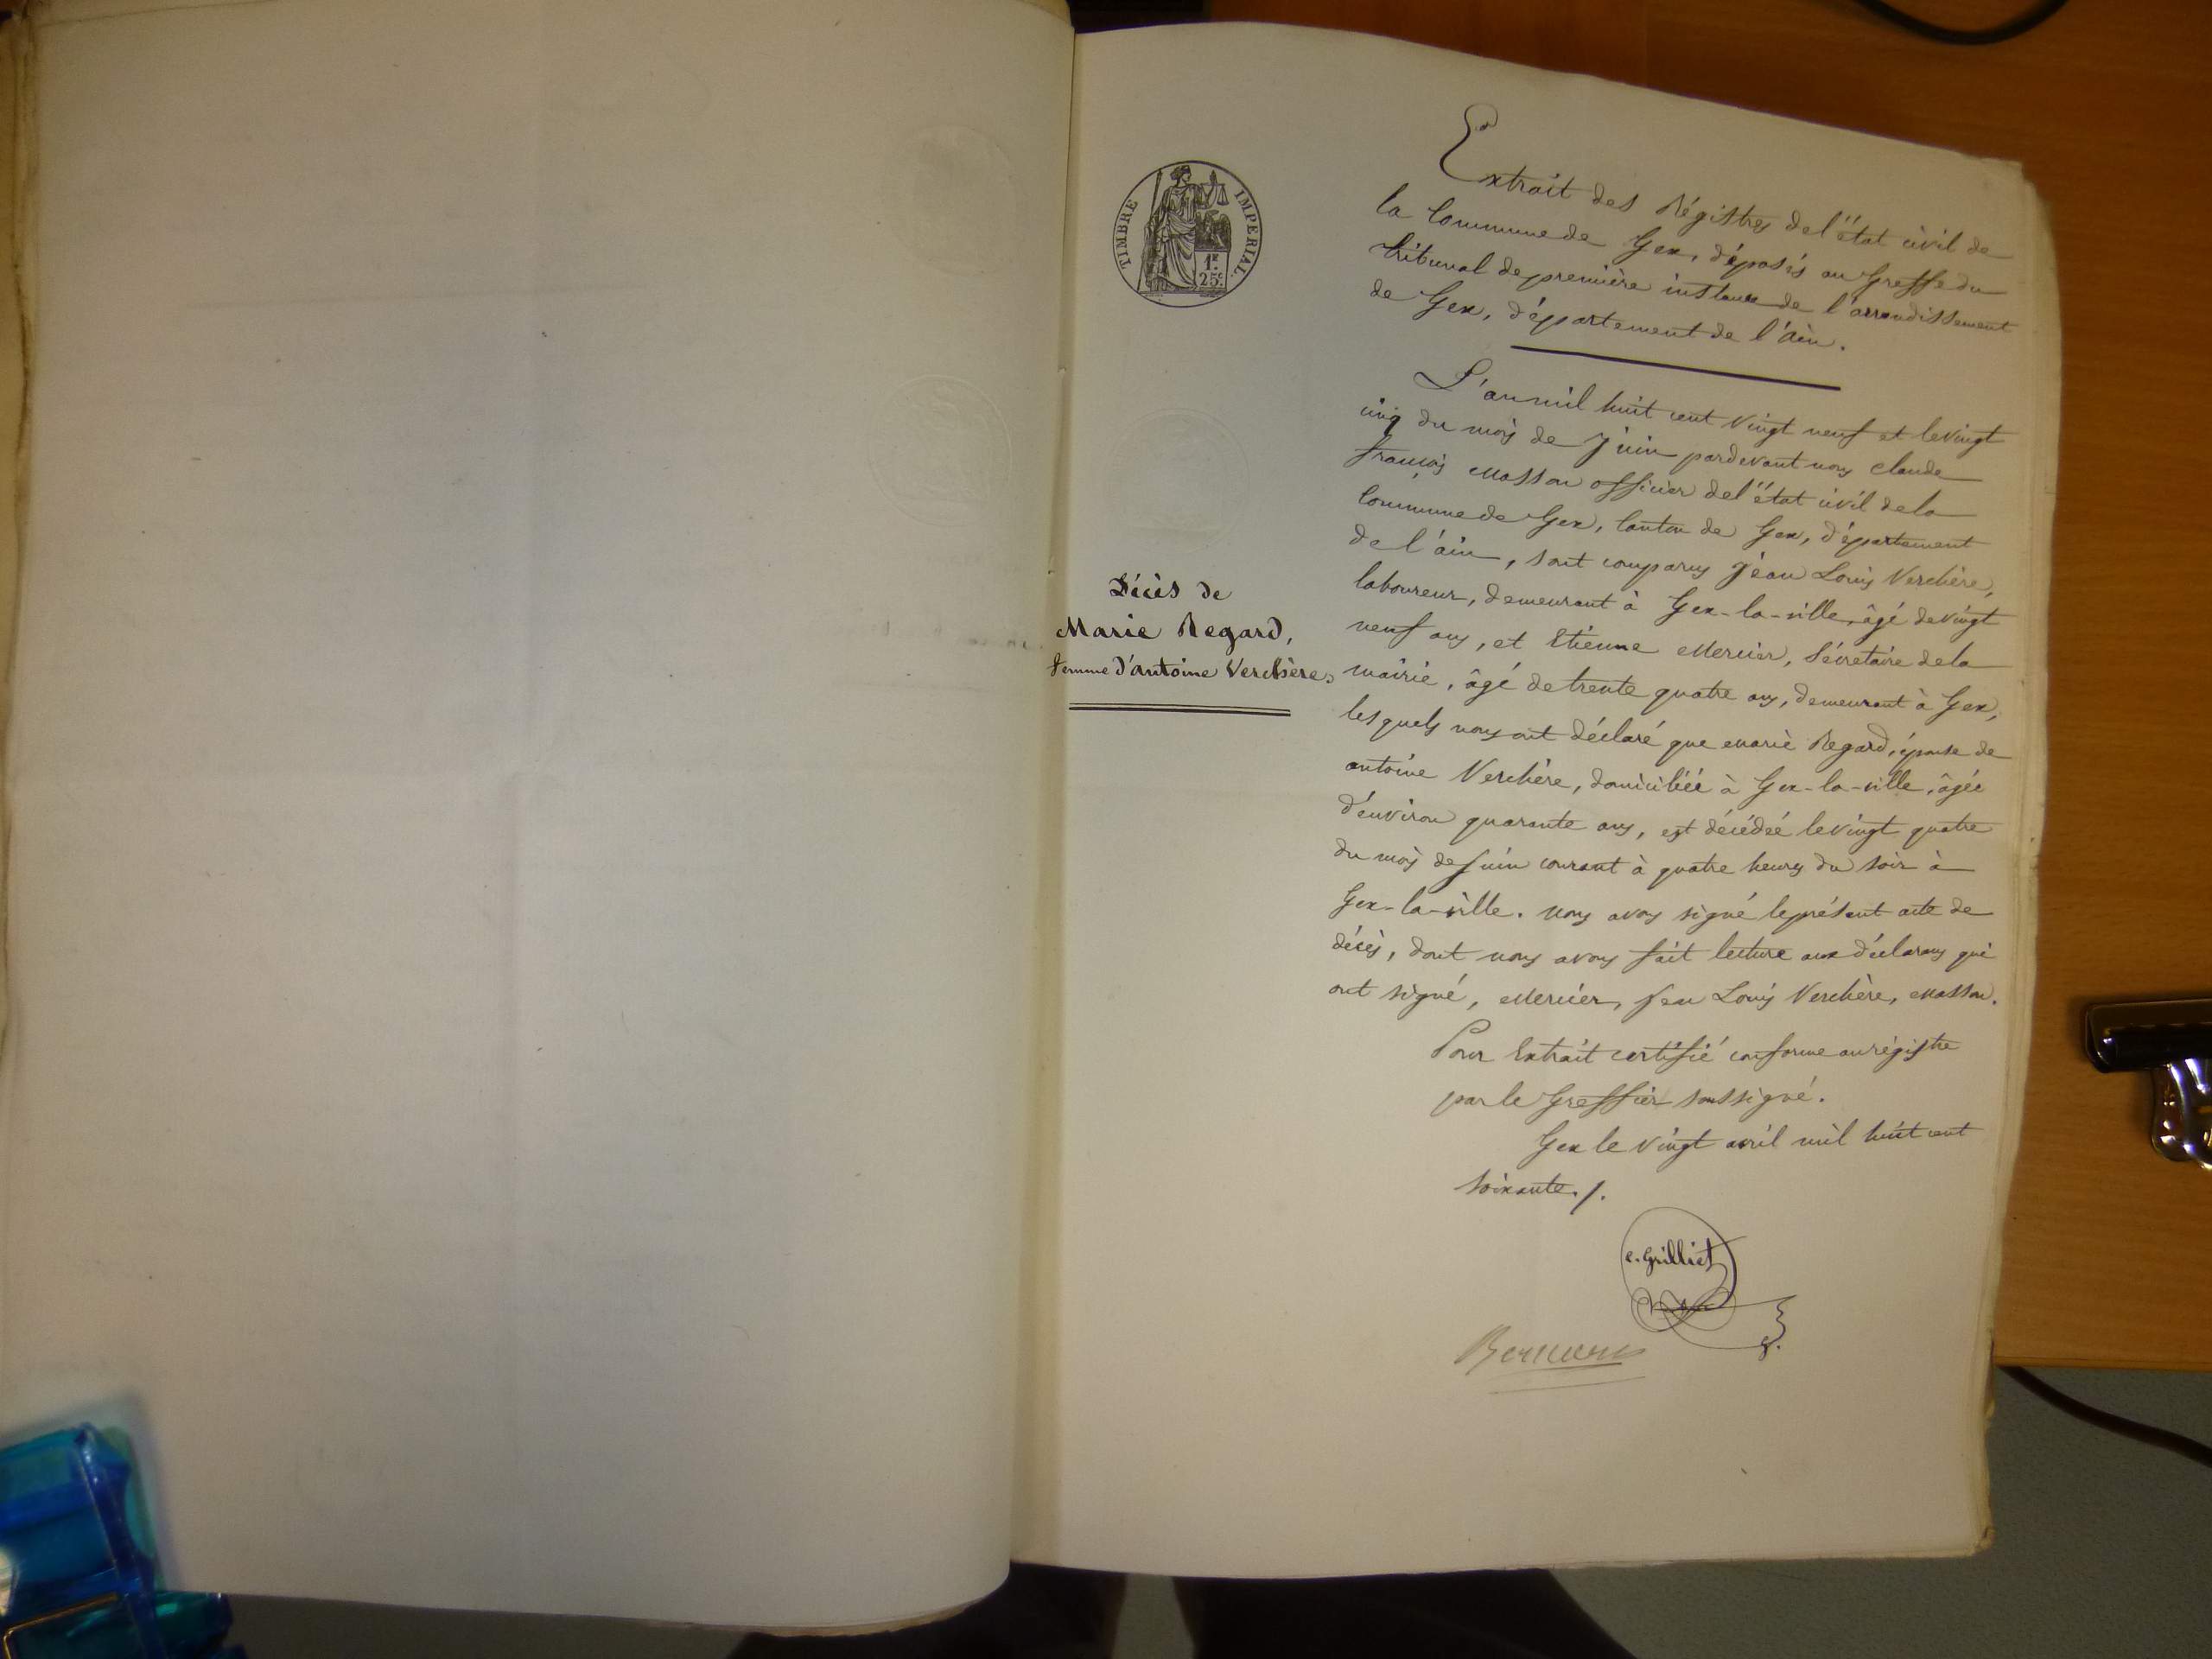 TIMBRE IMPERIAL.
1F.
25c.
Extrait des Régistres de l'état civil de
la Commune de Gex, déposés au Greffe du
tribunal de première instance de l'arrondissement
de Gex, département de l'Ain.
Décès de
Marie Regard,
femme d'Antoine Verchère.
L'an mil huit cent vingt neuf et le vingt
cinq du mois de Juin pardevant nous Claude
François Masson officier de l'état civil de la
Commune de Gex, Canton de Gex, département
de l'ain, sont comparus Jean Louis Verchère,
laboureur, demeurant à Gex-la-ville, âgé de vingt
neuf ans, et Etienne Mercier, Sécretaire de la
mairie, âgé de trente quatre ans, demeurant à Gex,
lesquels nous ont déclaré que Marie Regard, épouse de
antoine Verchère, domiciliée à Gex-la-ville, âgée
d'environ quarante ans, est décédée le vingt quatre
du mois de Juin courant à quatre heures du soir à
Gex-la-ville. nous avons signé le présent acte de
décès, dont nous avons fait lecture aux déclarans qui
ont signé, Mercier, Jean Louis Verchère, Masson.
Pour Extrait certifié conforme au régistre
par le Greffier soussigné.
Gex le vingt avril mil huit cent
soixante./.
C. Grilliet